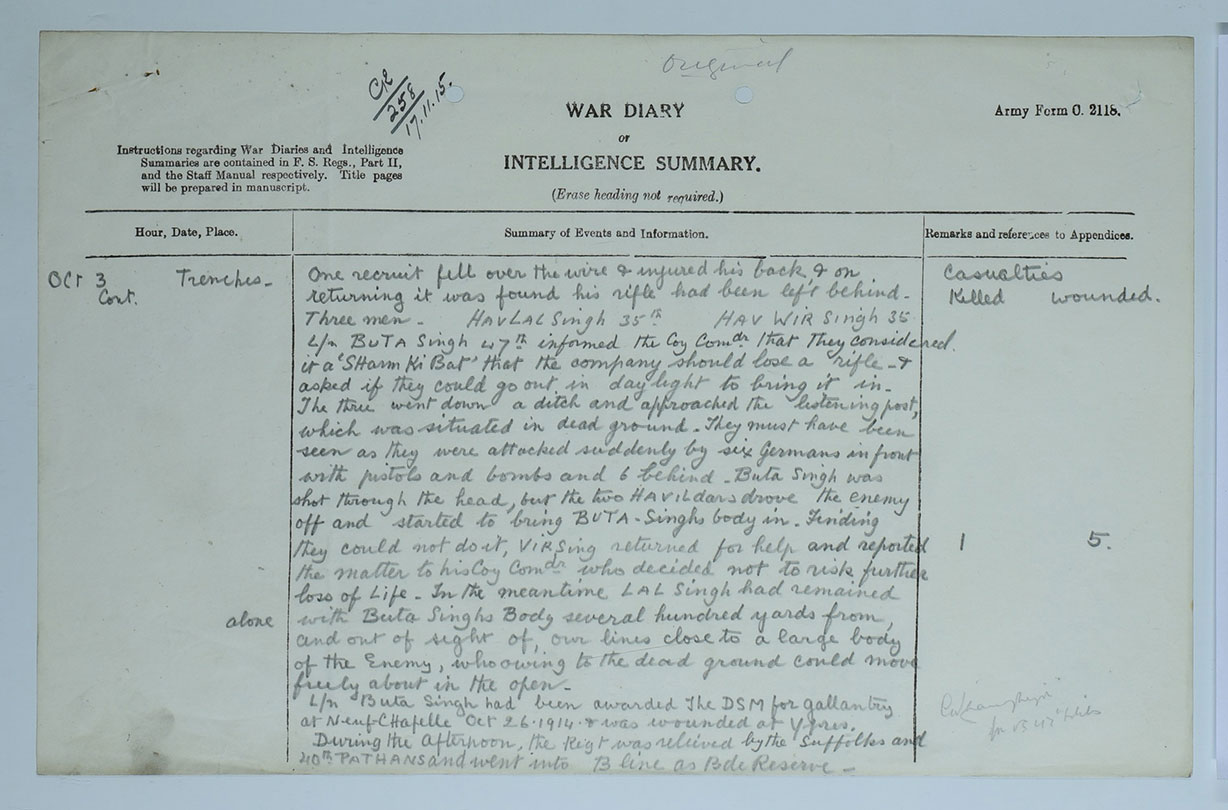 Original
CR
258
17.11.15.
WAR DIARY
or
INTELLIGENCE SUMMARY.
(Erase heading not required.)
Army Form C. 2118.
Instructions regarding War Diaries and Intelligence
Summaries are contained in F. S. Regs., Part II,
and the Staff Manual respectively. Title pages
will be prepared in manuscript.
Hour, Date, Place.
Summary of Events and Information.
Remarks and references to Appendices.
Oct 3 Trenches -
Cont.
One recruit fell over the wire & injured his back & on
returning it was found his rifle had been left behind.
Three men - HAV LAL Singh 35th HAV WIR Singh 35
L/n BUTA Singh 47th informed the Coy Comdr that they considered
it a 'SHarm Ki Bat' that the company should lose a rifle - &
asked if they could go out in day light to bring it in.
The three went down a ditch and approached the listening post,
which was situated in dead ground. They must have been
seen as they were attacked suddenly by six Germans in front
with pistols and bombs and 6 behind. Buta Singh was
shot through the head, but the two HAVILdars drove the enemy
off and started to bring BUTA-Singhs body in. Finding
they could not do it, VIR Sing returned for help and reported
the matter to his Coy Comdr who decided not to risk further
loss of Life - In the meantime LAL Singh had remained
alone with Buta Singhs Body several hundred yards from,
and out of sight of, our lines close to a large body
of the Enemy, who owing to the dead ground could move
freely about in the open -
L/n Buta Singh had been awarded The DSM for gallantry
at Neuf Chapelle Oct 26.1914 & was wounded at Ypres.
During the Afternoon, the Regt was relieved by the Suffolks and
40th PATHANS and went into B line as Bde Reserve -
Casualties
Killed wounded.
1 5.